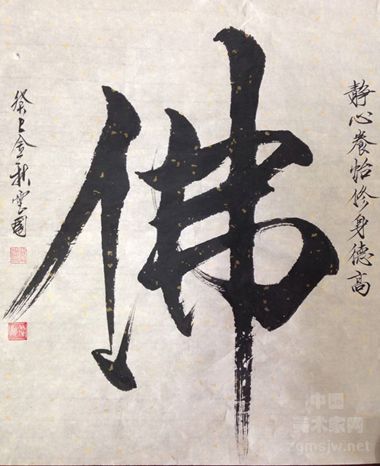 静心养怡修身德高
佛
癸巳金秋云国
中国
美术家网
zgmsjw.net